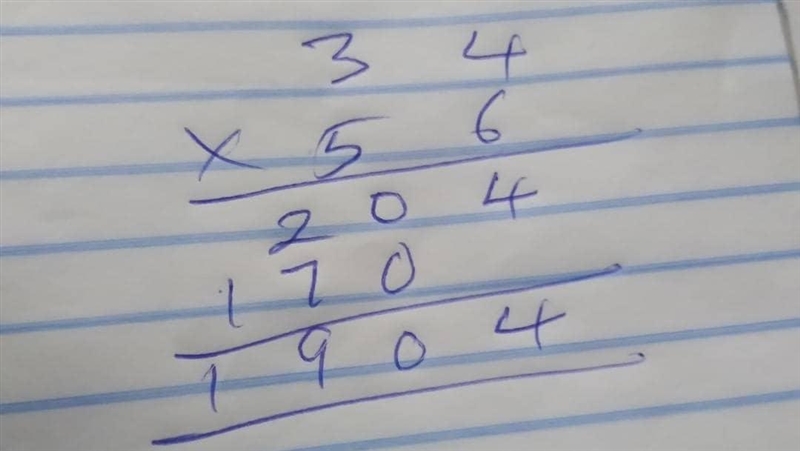 3 4
× 5 6
2 0 4
1 7 0
1 9 0 4